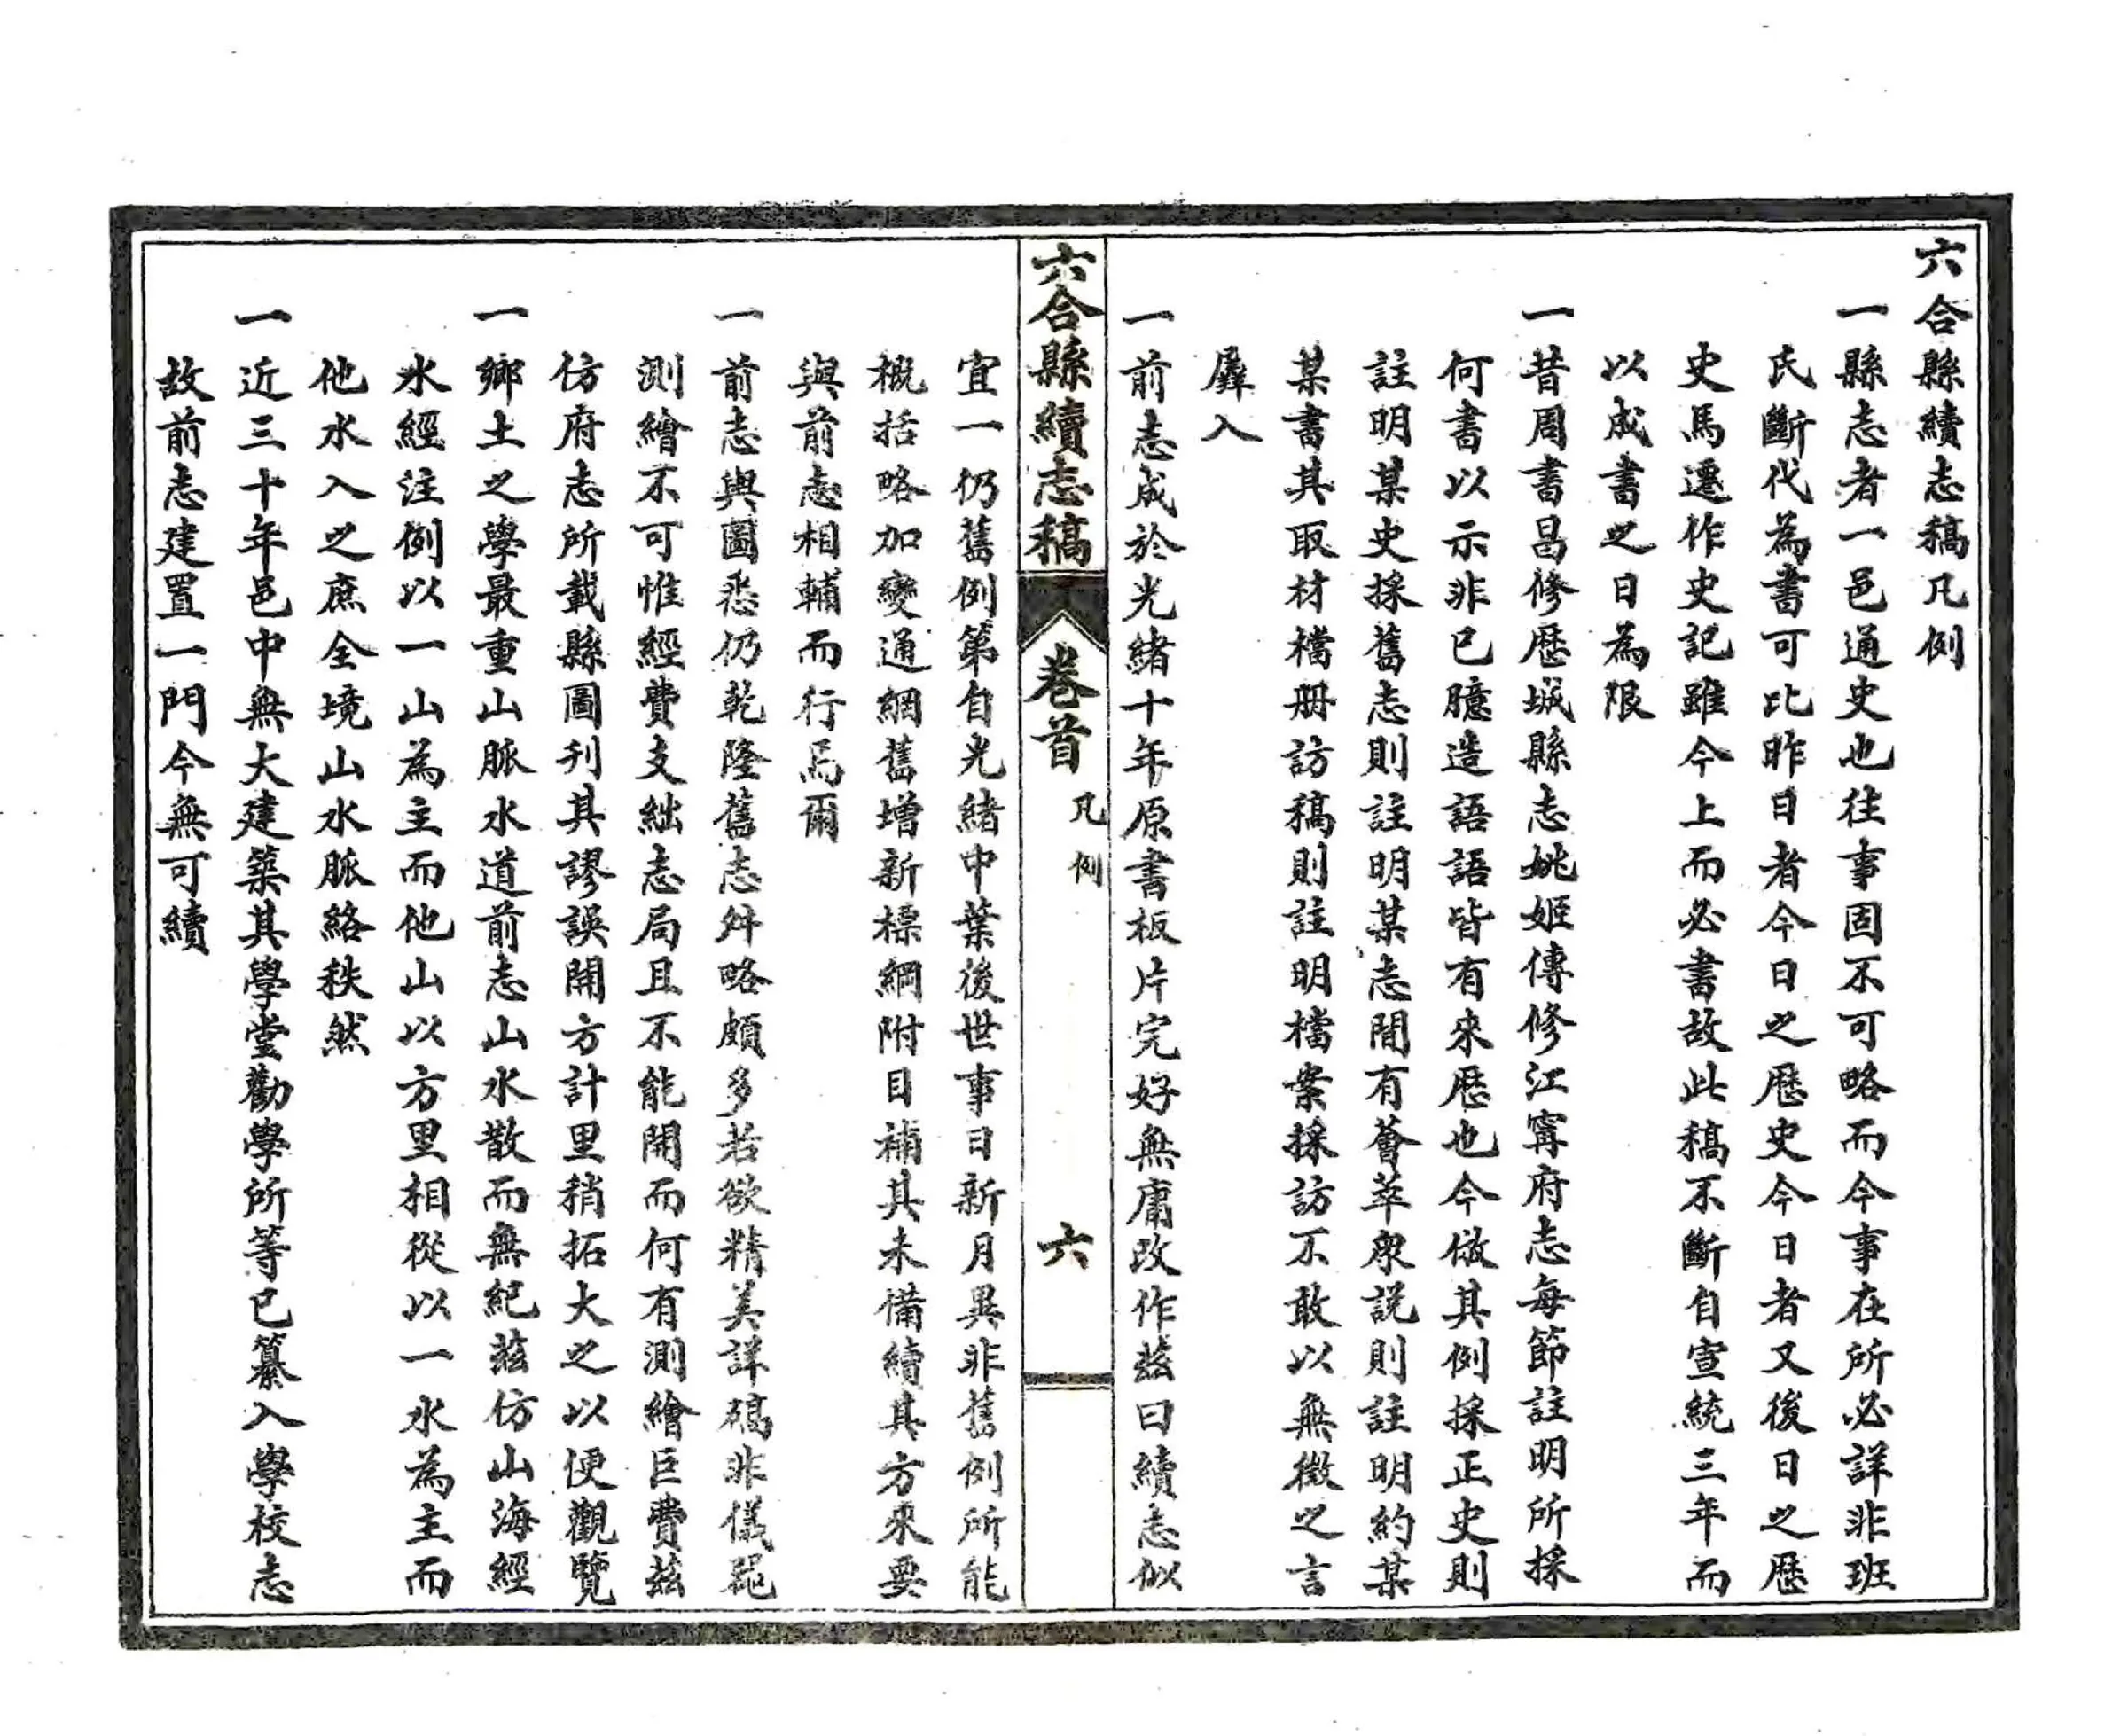 六合縣續志稿凡例
一縣志者一邑通史也往事固不可略而今事在所必詳非班
氏斷代為書可比昨日者今日之歷史今日者又後日之歷
史馬遷作史記雖今上而必書故此稿不斷自宣統三年而
以成書之日為限
一昔周書昌修歷城縣志姚姬傳修江寧府志每節註明所採
何書以示非已臆造語語皆有來歷也今倣其例採正史則
註明某史採舊志則註明某志間有薈萃眾說則註明約某
某書其取材檔册訪稿則註明檔案採訪不敢以無徵之言
羼入
一前志成於光緒十年原書板片完好無庸改作茲曰續志似
六合縣續志稿
卷首
凡例
六
宜一仍舊例第自光緒中葉後世事日新月異非舊例所能
概括略加變通綱舊增新標綱附目補其未備續其方來要
與前志相輔而行焉爾
一前志輿圖悉仍乾隆舊志舛略頗多若欲精美詳碻非儀器
測繪不可惟經費支絀志局且不能開而何有測繪巨費茲
仿府志所載縣圖刋其謬誤開方計里稍拓大之以便觀覽
一鄉土之學最重山脈水道前志山水散而無紀茲仿山海經
水經注例以一山為主而他山以方里相從以一水為主而
他水入之庶全境山水脈絡秩然
一近三十年邑中無大建築其學堂勸學所等已纂入學校志
故前志建置一門今無可續